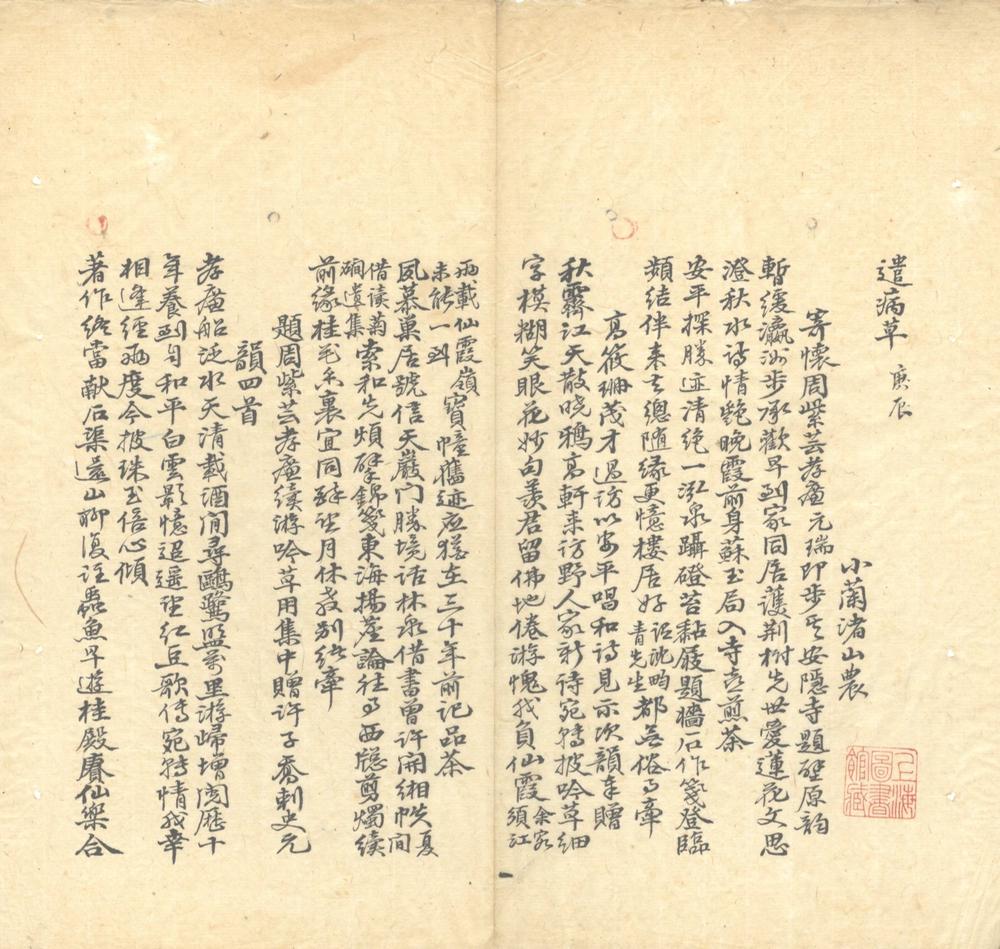 遣病草 庚辰
小蘭渚山農
寄懷周紫芸孝廉元瑞即步其安隱寺題壁原韵
暫緩瀛洲步承歡早到家同居護荆樹先世愛蓮花文思
澄秋水詩情艷晚霞前身蘇玉局入寺喜煎茶
安平探勝迹清絶一泓泉躡磴苔黏屐題牆石作箋登臨
頻結伴来去總随緣更憶樓居好沼沈畇青先生都無俗事牽
高筱珊茂才過訪以安平唱和詩見示次韻奉贈
秋霽江天散晓鴉高軒来訪野人家新诗宛轉披吟草細
字模糊笑眼花妙句羨君留佛地倦游愧我負仙霞余家須江
兩載仙霞嶺未能一到寶幢舊迹应猶在三十年前记品茶
夙慕巢居號信天巖门勝境话林泉借書曾许開緗帙夏间
借读菊磵遺集索和先煩擘錦箋東海揚塵論往事西牕剪燭續
前緣桂花香裏宜同醉望月休教别绪牽
題周紫芸孝廉續游吟草用集中贈许子喬刺史元
韻四首
孝廉船泛水天清載酒閒尋鷗鷺盟萬里游歸增閲歷十
年養到自和平白雲影憶迢遥望红豆歌传宛轉情我幸
相逢經兩度今披珠玉倍心傾
著作终當献石渠還山柳復注蟲魚早遊桂殿賡仙樂合
上海圖書館藏